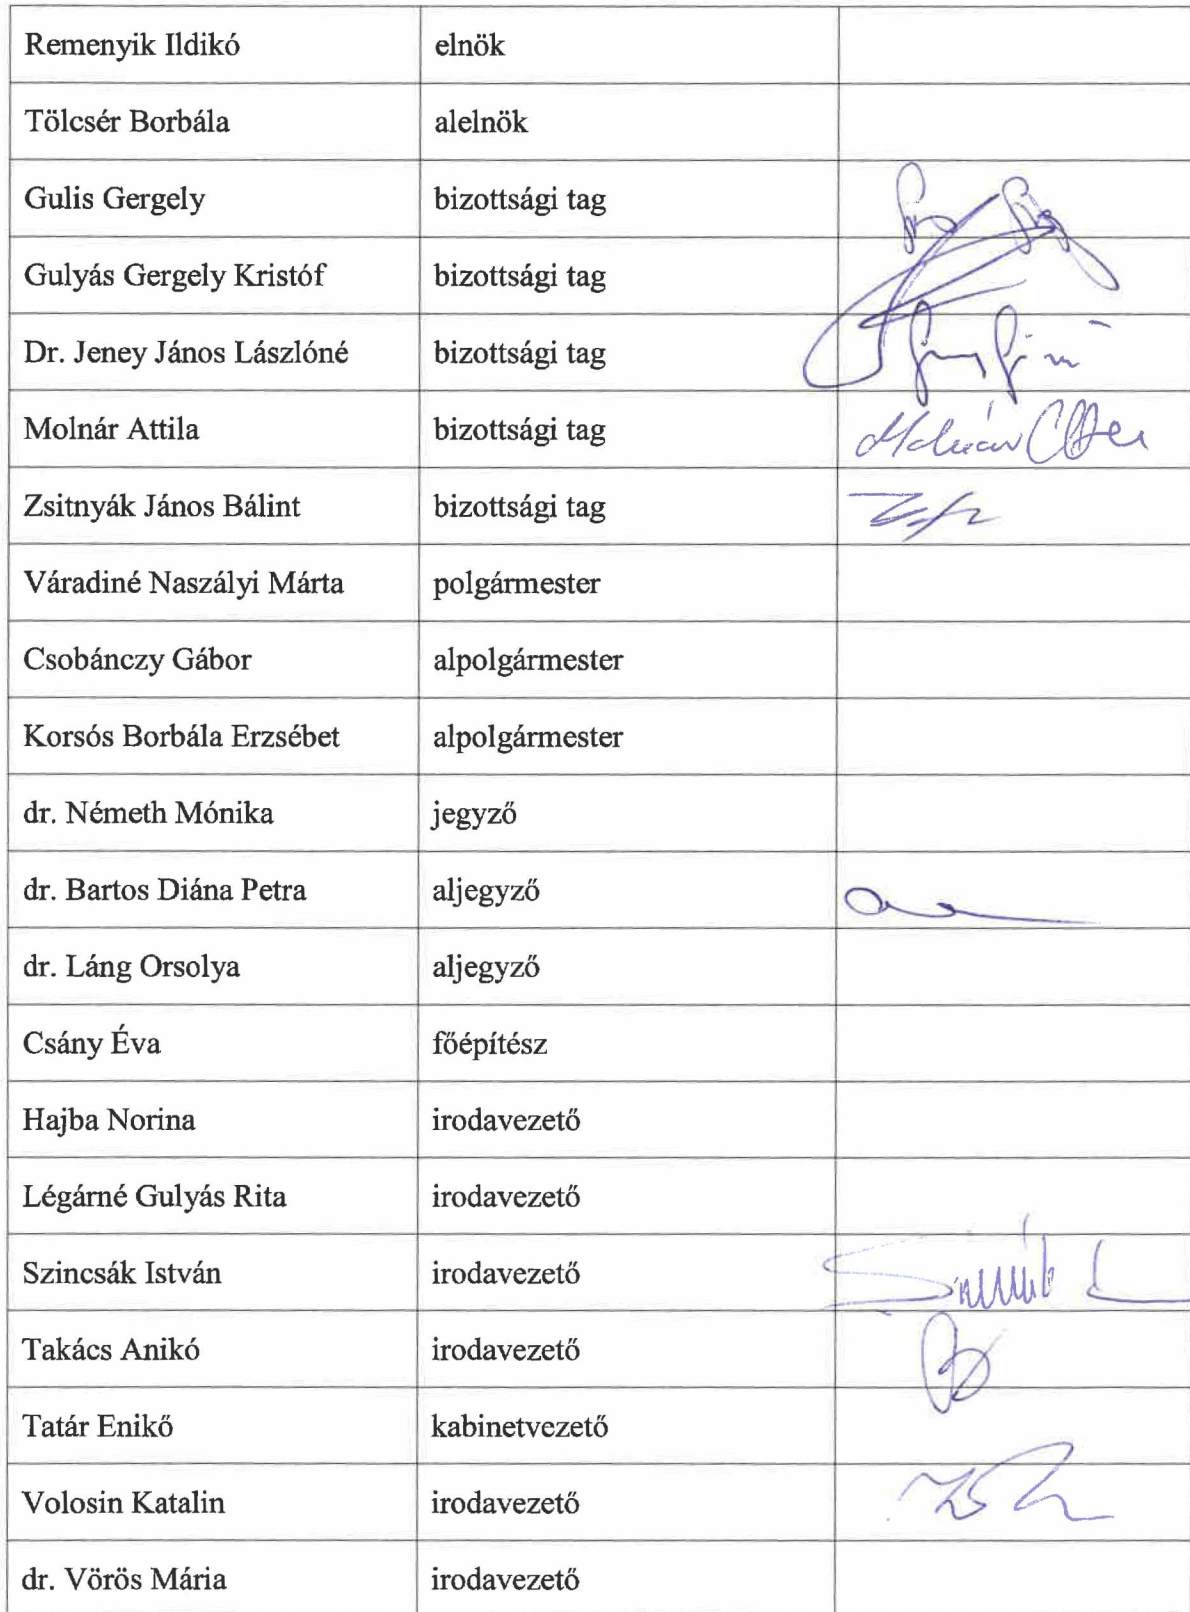 Remenyik Ildikó elnök
Tölcsér Borbála alelnök
Gulis Gergely bizottsági tag
Gulyás Gergely Kristóf bizottsági tag
Dr. Jeney János Lászlóné bizottsági tag
Molnár Attila bizottsági tag Molnár
Zsitnyák János Bálint bizottsági tag
Váradiné Naszályi Márta polgármester
Csobánczy Gábor alpolgármester
Korsós Borbála Erzsébet alpolgármester
dr. Németh Mónika jegyző
dr. Bartos Diána Petra aljegyző
dr. Láng Orsolya aljegyző
Csány Éva főépítész
Hajba Norina irodavezető
Légárné Gulyás Rita irodavezető
Szincsák István irodavezető
Takács Anikó irodavezető
Tatár Enikő kabinetvezető
Volosin Katalin irodavezető
dr. Vörös Mária irodavezető